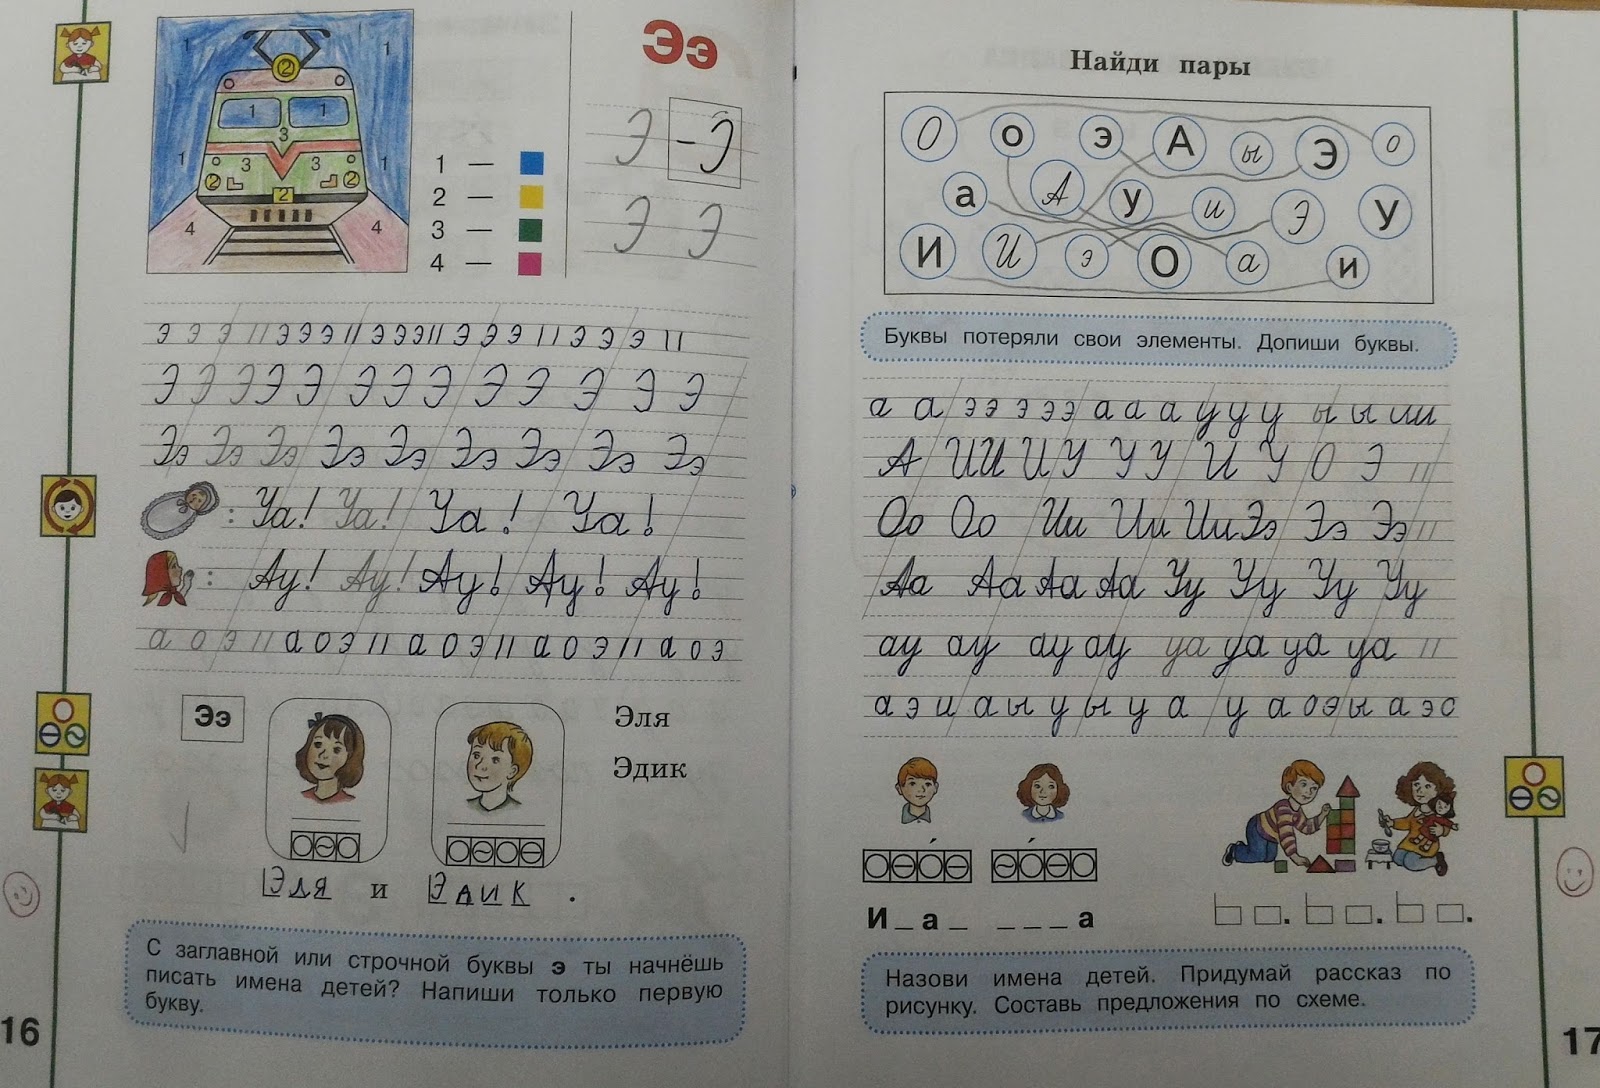 Ээ
1 1
2
1 1
3
1 3 3 1
2 2 2
4 4
1 —
2 —
3 —
4 —
Э - Э
Э Э
э э э || э э э || э э э || э э э || э э э ||
Э Э Э Э Э Э Э Э Э Э Э Э Э
Ээ Ээ Ээ Ээ Ээ Ээ Ээ Ээ Ээ
: Уа! Уа! Уа! Уа!
: Ау! Ау! Ау! Ау! Ау!
а о э || а о э || а о э || а о э || а о э
Ээ
Эля
Эдик
Эля и Эдик .
С заглавной или строчной буквы э ты начнёшь
писать имена детей? Напиши только первую
букву.
16
Найди пары
О о э А ы Э о
а А у и Э У
И И э О а и
Буквы потеряли свои элементы. Допиши буквы.
а а э э э э э а а а у у у ы ы и и
А И И И У У У И У О Э ||
Оо Оо Ии Ии Ии Ээ Ээ Ээ ||
Аа Аа Аа Аа Уу Уу Уу Уу
ау ау ау ау уа уа уа уа ||
а э и а ы у ы у а у а о э ы а э о
И _ а _ _ _ _ а
. . .
Назови имена детей. Придумай рассказ по
рисунку. Составь предложения по схеме.
17